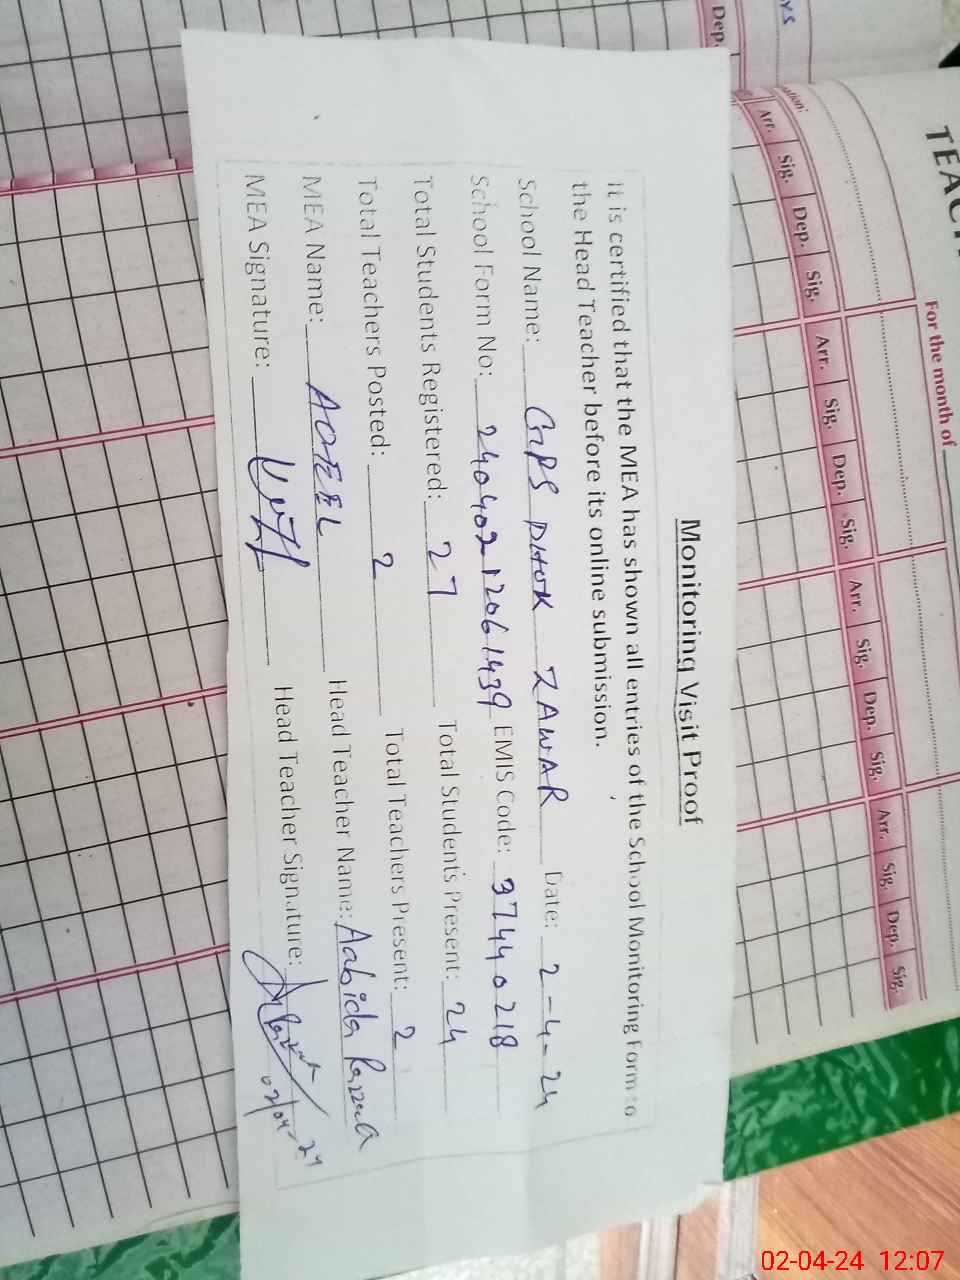 Monitoring Visit Proof
It is certified that the MEA has shown all entries of the School Monitoring Form to
the Head Teacher before its online submission.
School Name: GPS DHOK ZAWAR Date: 2-4-24
School Form No: 24040212061439 EMIS Code: 37440218
Total Students Registered: 27 Total Students Present: 24
Total Teachers Posted: 2 Total Teachers Present: 2
MEA Name: AQEEL Head Teacher Name: Aabida Razzaq
MEA Signature: Head Teacher Signature:
02/04-24
For the month of
Arr. Sig. Dep. Sig. Arr. Sig. Dep. Sig. Arr. Sig. Dep. Sig. Arr. Sig. Dep. Sig.
Dep.
02-04-24 12:07